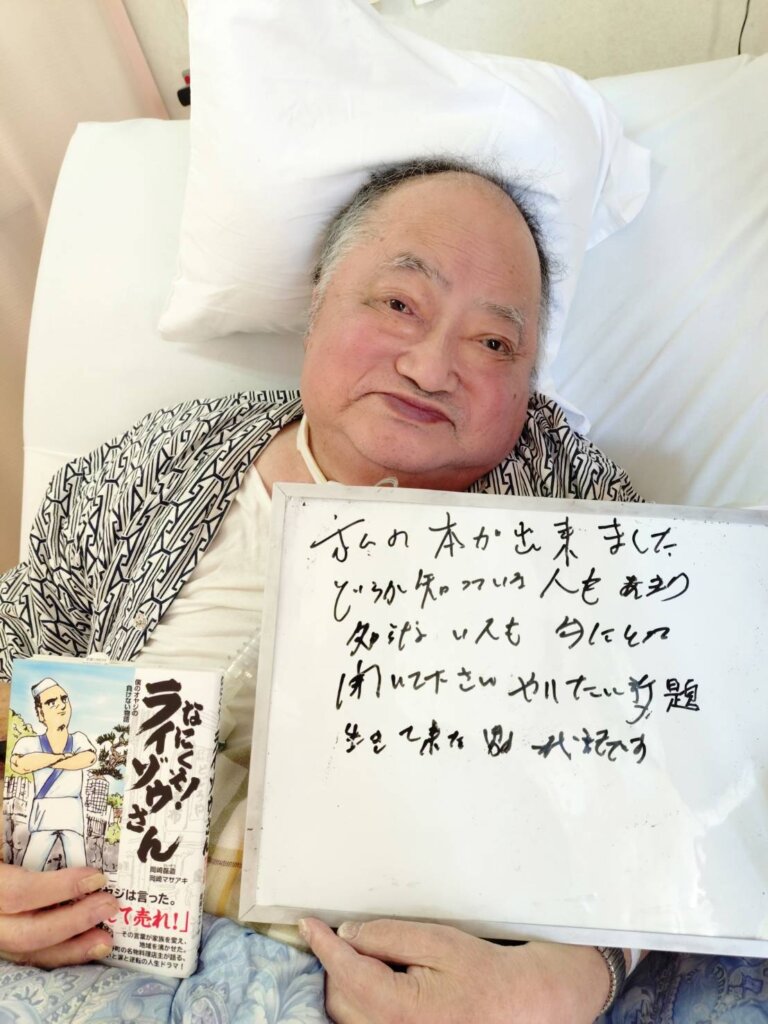 私の 本が出来ました
どうか知っている人も
知らない人も 手にとって
開いて下さい やりたい放題
生きて来た男 一代記です
僕のオヤジの
負けない物語
なにくそ!
ライゾウさん
岡崎磊造
岡崎マサアキ
ヤジは言った。
て売れ!」
その言葉が家族を変え、
地域を沸かせた。
町の名物料理店主が語る、
と涙と逆転の人生ドラマ!